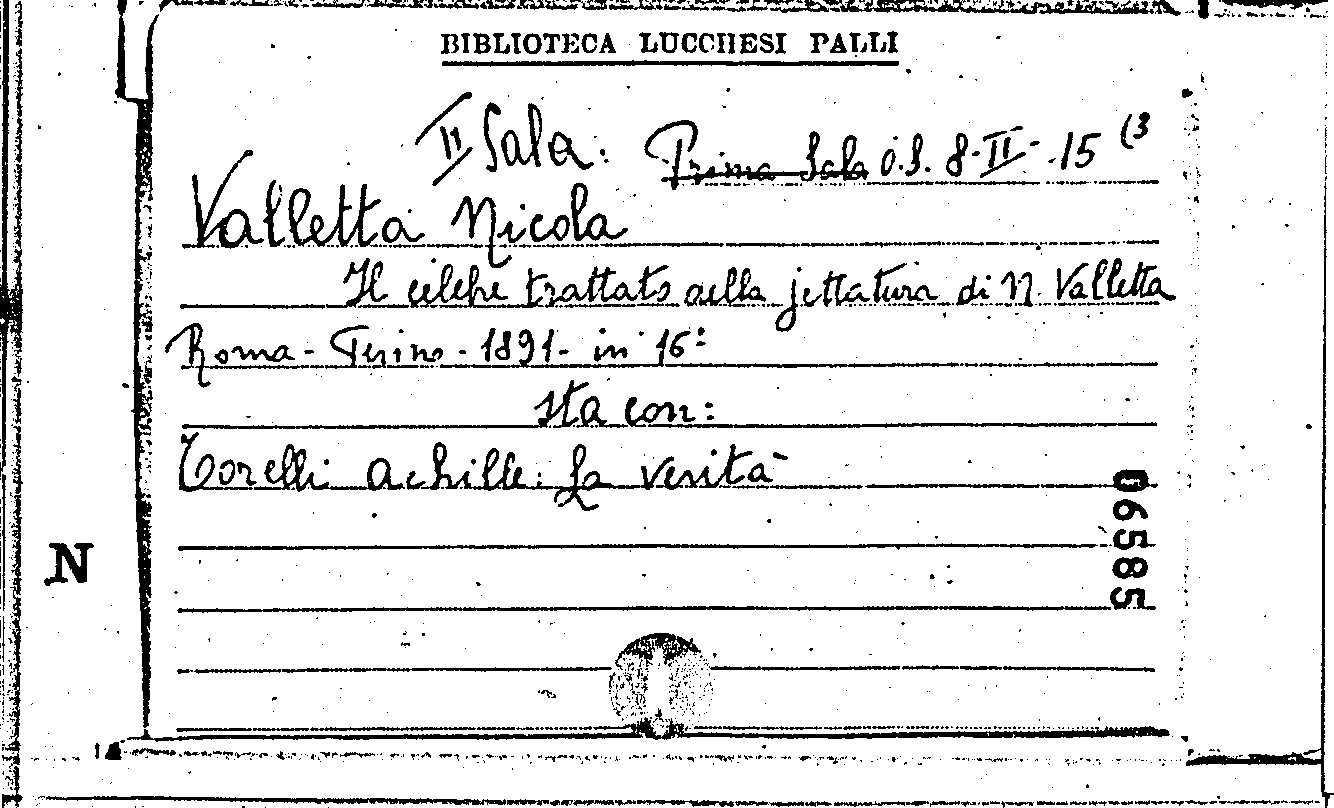 BIBLIOTECA LUCCHESI PALLI
II Sala: Prima Sala O.S. 8-II-15 (3
Valletta Nicola
Il celebre trattato della jettatura di N. Valletta
Roma - Torino - 1891 - in 16°
sta con:
Torelli Achille: La verità
N
06585